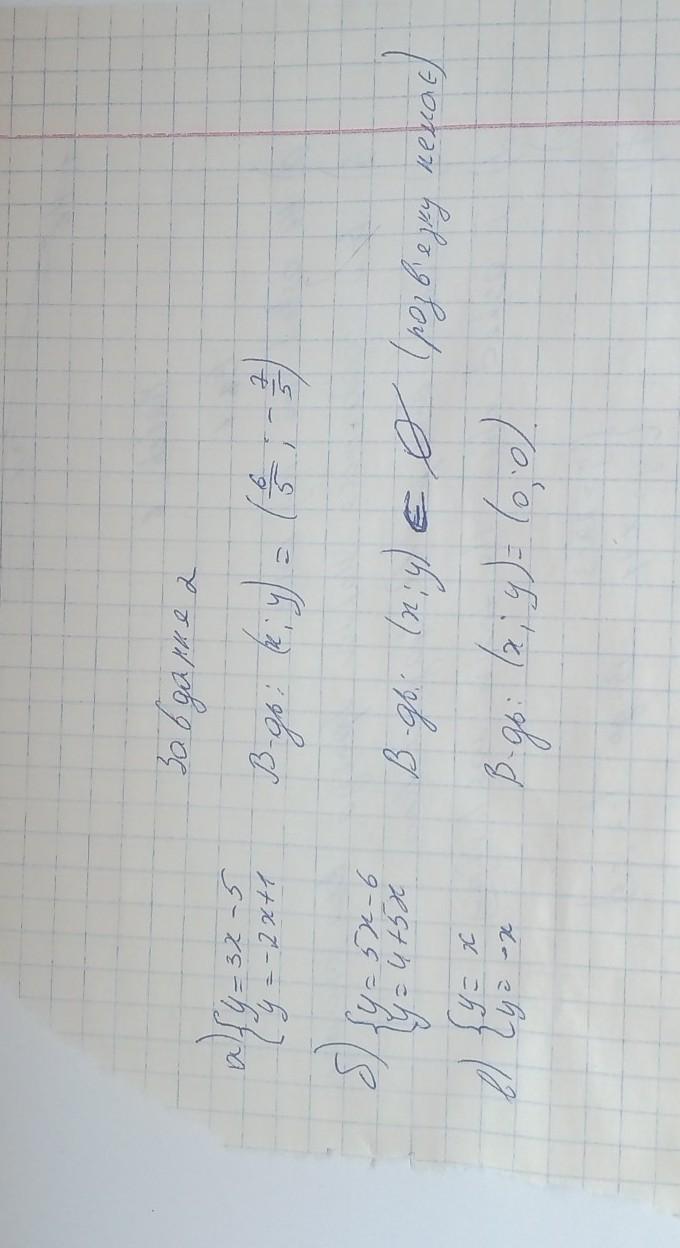 Завдання 2
а) {y = 3x - 5
{y = -2x + 1
В-дь: (x; y) = (6/5; -7/5)
б) {y = 5x - 6
{y = 4 + 5x
В-дь: (x; y) ∈ ∅ (розв'язку немає)
в) {y = x
{y = -x
В-дь: (x; y) = (0; 0)